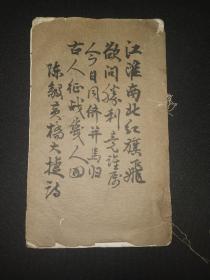 江淮南北红旗飛
欲问胜利竟谁属
今日同侪并马归
古人征战几人回
陈毅黄桥大捷诗